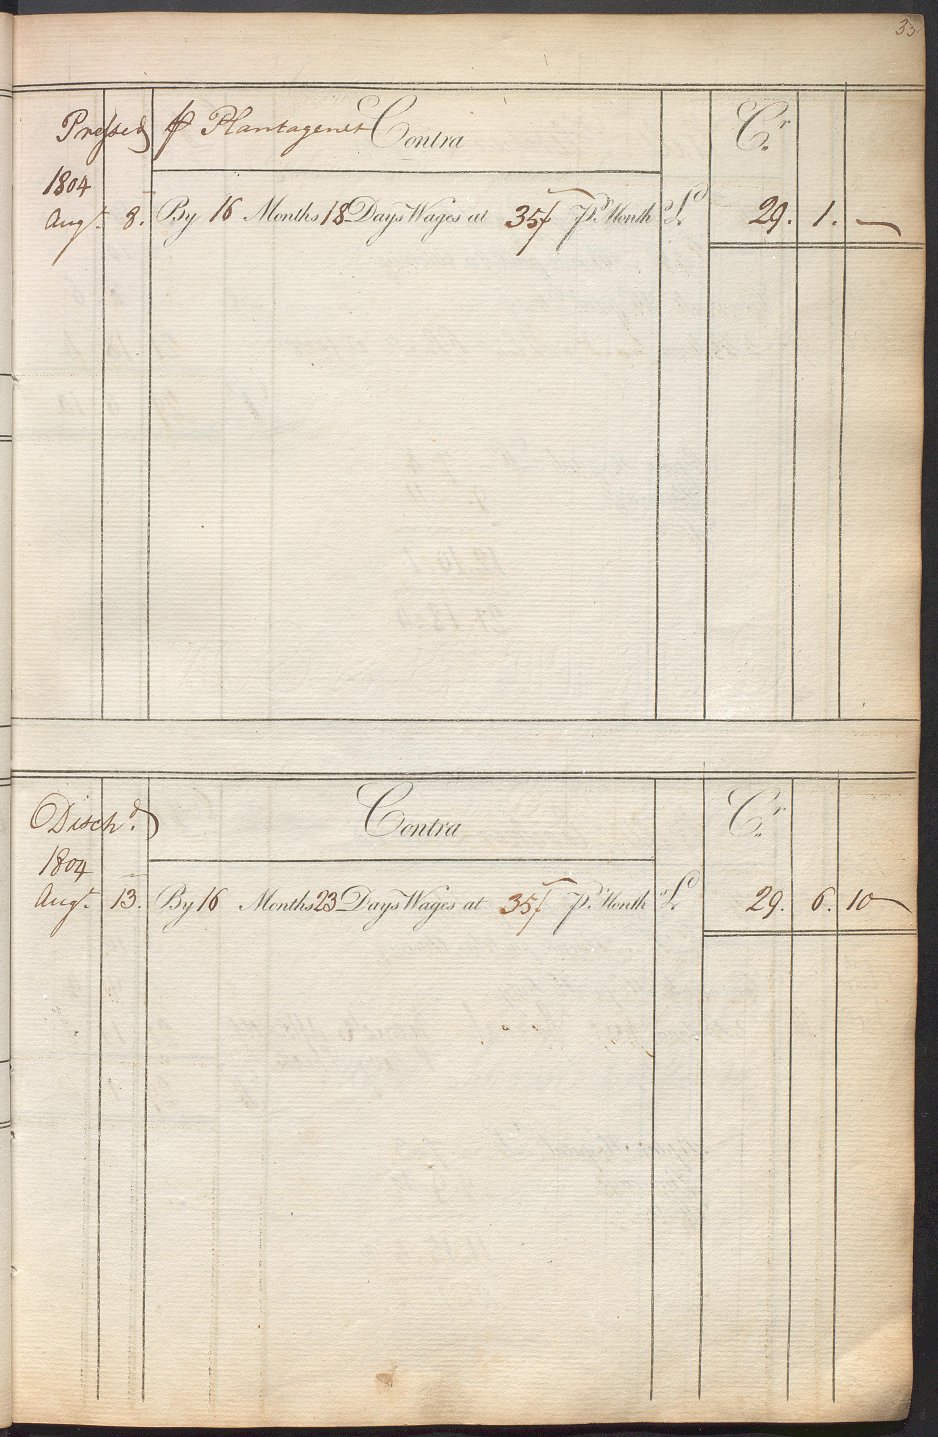 33
Pressed ⅌ Plantagenet Contra Cr.
1804
Augt. 8. By 16 Months 18 Days Wages at 35/ Pr. Month £ 29. 1. —
Dischd. Contra Cr.
1804
Augt. 13. By 16 Months 23 Days Wages at 35/ Pr. Month £ 29. 6. 10